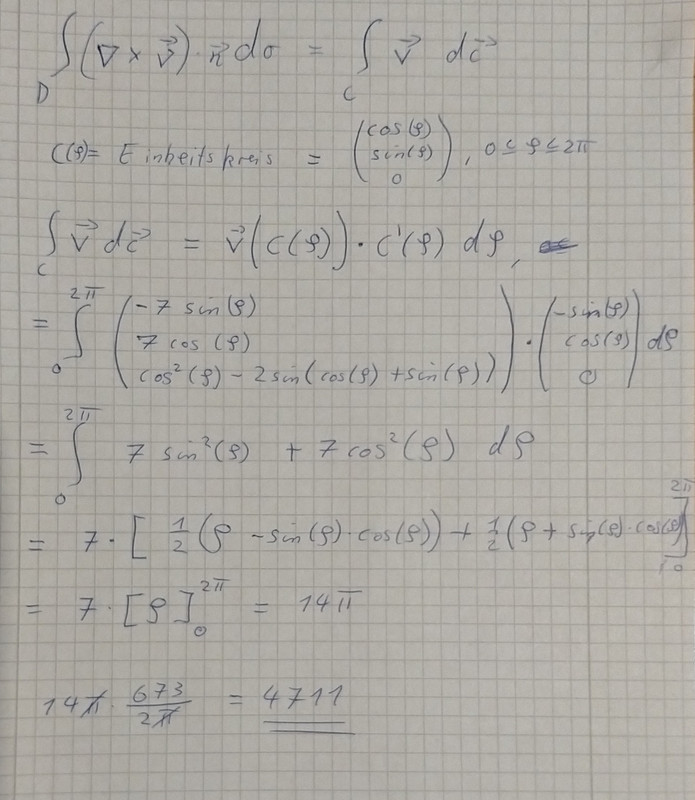 ∫_D (∇ × v⃗) · n⃗ dσ = ∫_C v⃗ dc⃗
C(φ) = Einheitskreis = (cos(φ) sin(φ) 0), 0 ≤ φ ≤ 2π
∫_C v⃗ dc⃗ = v⃗(C(φ)) · C'(φ) dφ,
= ∫_0^{2π} (-7 sin(φ) 7 cos(φ) cos²(φ) - 2sin(cos(φ) + sin(φ))) · (-sin(φ) cos(φ) 0) dφ
= ∫_0^{2π} 7 sin²(φ) + 7 cos²(φ) dφ
= 7 · [ 1/2 (φ - sin(φ) · cos(φ)) + 1/2 (φ + sin(φ) · cos(φ) ]_0^{2π}
= 7 · [φ]_0^{2π} = 14π
14π · 673/2π = 4711